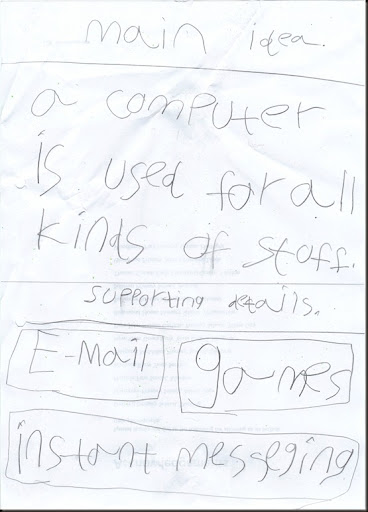 main idea.
a computer
is used for all
kinds of stoff.
supporting details.
E-Mail games
instant messeging